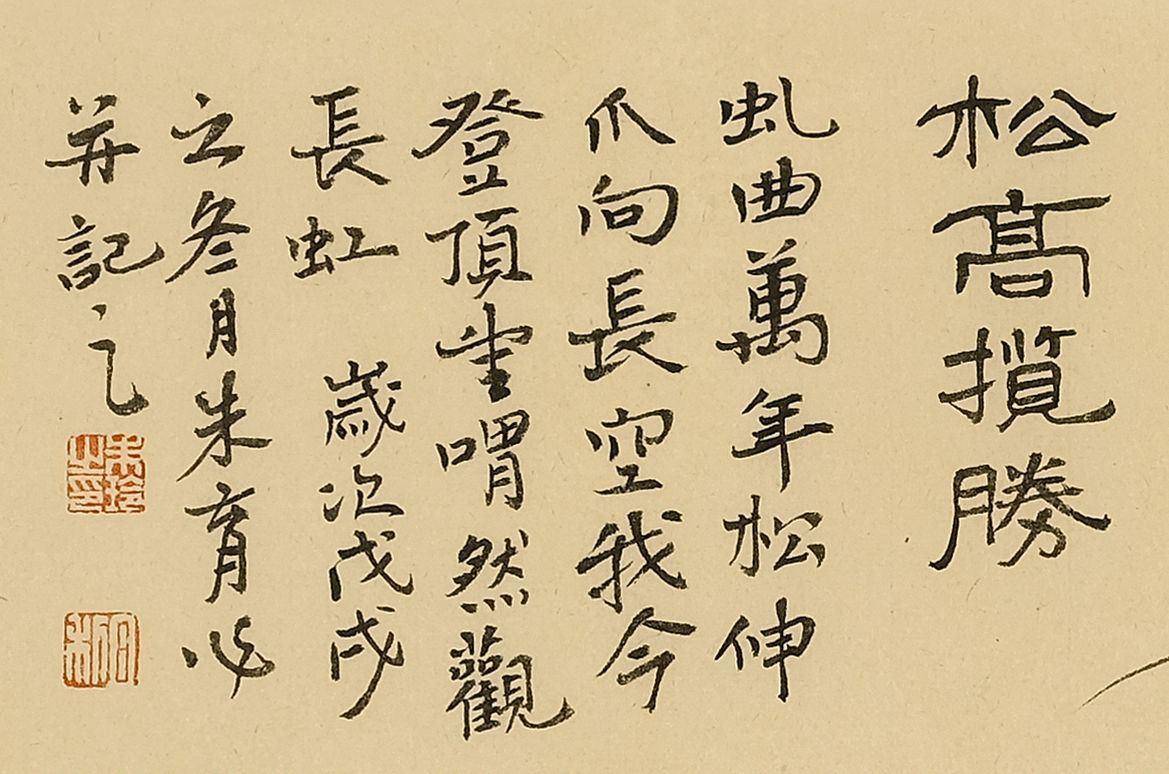 松高攬勝
虬曲萬年松伸
爪向長空我今
登頂坐喟然觀
長虹 歲次戊戌
之冬月朱育心
并記之